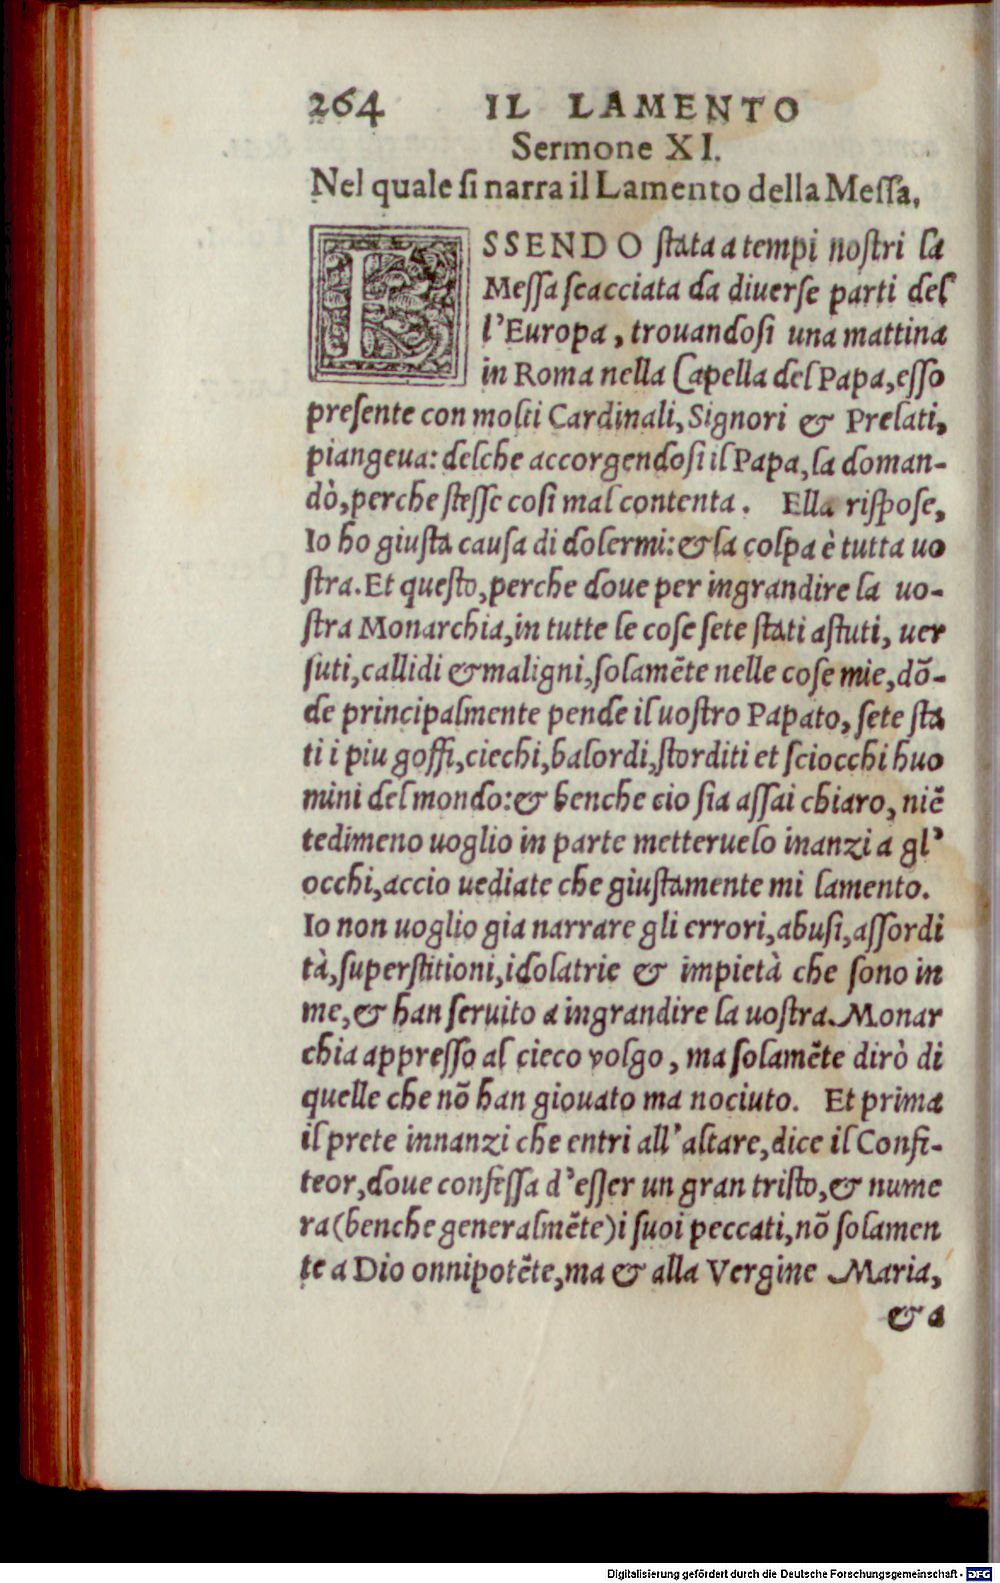 264 IL LAMENTO
Sermone XI.
Nel quale ſi narra il Lamento della Meſſa.
ESSENDO ſtata a tempi noſtri la
Meſſa ſcacciata da diuerſe parti del
l'Europa, trouandoſi una mattina
in Roma nella Capella del Papa, eſſo
preſente con molti Cardinali, Signori & Prelati,
piangeua: delche accorgendoſi il Papa, la doman-
dò, perche ſteſſe coſi mal contenta. Ella riſpoſe,
Io ho giuſta cauſa di dolermi: & la colpa è tutta uo
ſtra. Et queſto, perche doue per ingrandire la uo-
ſtra Monarchia, in tutte le coſe ſete ſtati aſtuti, uer
ſuti, callidi & maligni, ſolamẽte nelle coſe mie, dõ-
de principalmente pende il uoſtro Papato, ſete ſta
ti i piu goffi, ciechi, balordi, ſtorditi et ſciocchi huo
mini del mondo: & benche cio ſia aſſai chiaro, niẽ
tedimeno uoglio in parte metteruelo inanzi a gl'
occhi, accio uediate che giuſtamente mi lamento.
Io non uoglio gia narrare gli errori, abuſi, aſſordi
tà, ſuperſtitioni, idolatrie & impietà che ſono in
me, & han ſeruito a ingrandire la uoſtra Monar
chia appreſſo al cieco volgo, ma ſolamẽte dirò di
quelle che nõ han giouato ma nociuto. Et prima
il prete innanzi che entri all'altare, dice il Confi-
teor, doue confeſſa d'eſſer un gran triſto, & nume
ra (benche generalmẽte) i ſuoi peccati, nõ ſolamen
te a Dio onnipotẽte, ma & alla Vergine Maria,
& a
Digitalisierung gefördert durch die Deutsche Forschungsgemeinschaft - DFG